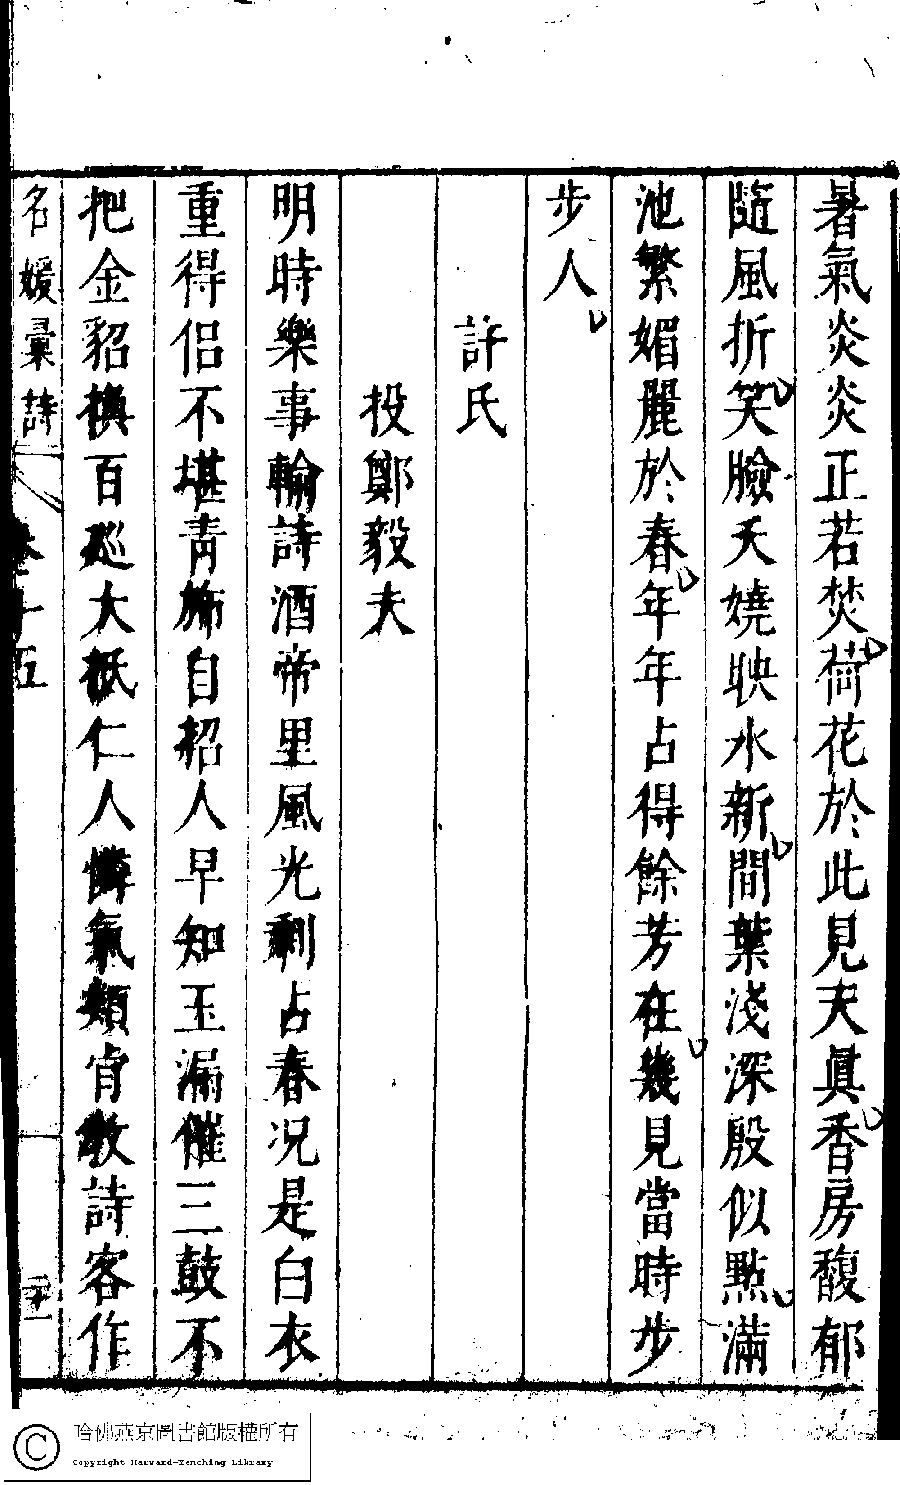 暑氣炎炎正若焚荷花於此見夫真香房馥郁
隨風折笑臉夭嬈映水新間葉淺深殷似點滿
池繁媚麗於春年年占得餘芳在幾見當時步
步人
許氏
投鄭毅夫
明時樂事輸詩酒帝里風光剩占春况是白衣
重得侣不堪青斾自招人早知玉漏催三鼓不
把金貂換百巡大抵仁人憐氣類肯教詩客作
名媛彙詩
卷十五
二十一
哈佛燕京圖書館版權所有
Copyright Harvard-Yenching Library